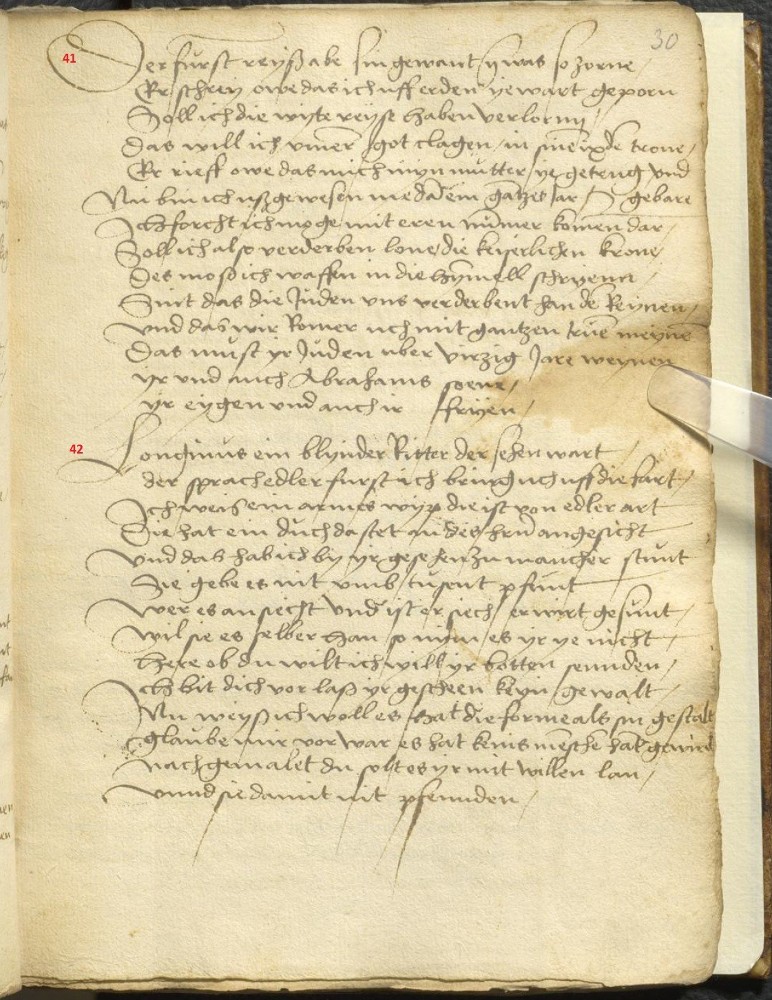 30
41
Der furst reyß abe sin gewant ym was so zorne
Er schrey owe das ich uff erden ye wart geporn
Soll ich die wyte reyse haben verlorn
Das will ich ymer got clagen in sinem trone
Er rieff owe das mich myn mutter ye getrug und
Nu bin ich uß gewesen me dan ein gantzes jar gebare
Ich forcht ich moge mit eren nummer komen dar
Soll ich also verderben lone die keiserlichen krone
Des moß ich waffen in die hymell schryenn
Sint das die Juden uns verderbent han de Reynen
Und das wir Romer uch mit gantzen truwe meyne
Das must yr Juden uber virzig Jare weynen
yr und auch Abrahams soene
yr eygen und auch ir fryen
42
Longinus ein blynder Ritter der sehen wart
der sprach edler furst ich bring uch uff die fart
Ich weiß ein armes wyp die ist von edler art
Die hat ein duch da stet an des hern angesicht
Und das hab ich by yr gesehen zu mancher stunt
Sie gebe es nit umb tusent pfunt
Wer es ansiecht Und ist er siech er wirt gesunt
Wil sie es selber han so nym es yr ye nicht
Here ob du wilt ich will yr botten sennden
Ich bit dich vor laß yr gescheen keyn gewalt
Nu weyß ich woll es hat die forme als sin gestalt
glaube mir vor war es hat keins mensche hant
nach gemalet du solt es yr mit willen lan
unnd sie damit nit pfennden